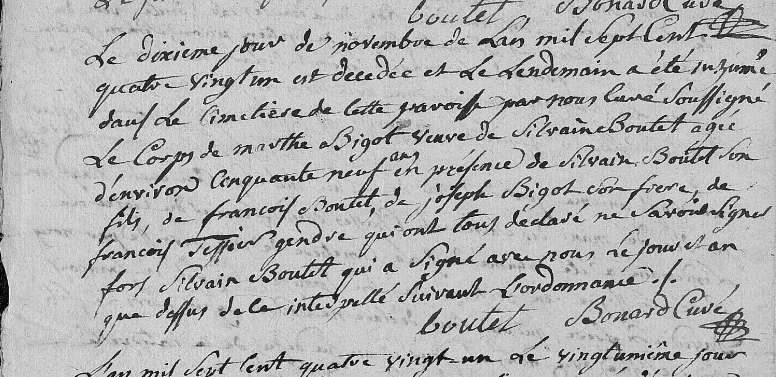 boutet Bonard Curé
Le dixieme jour de novembre de Lan mil Sept Cent
quatre vingt un est decedée et Le Lendemain a été inhumé
dans Le Cimetiere de Cette paroisse par nous Curé Soussigné
Le Corps de marthe Bigot veuve de Silvain Boutet agée
d'environ Cinquante neuf an en présence de Silvain Boutet Son
fils, de francois Boutet, de joseph Bigot Son frere, de
francois Tessier gendre qui ont tous déclaré ne Savoir Signer
fors Silvain Boutet qui a Signé avec nous Le jour et an
que dessus de ce interpellé Suivant L'ordonnance ./.
boutet Bonard Curé
L'an mil Sept Cent quatre vingt-un Le vingtunième jour